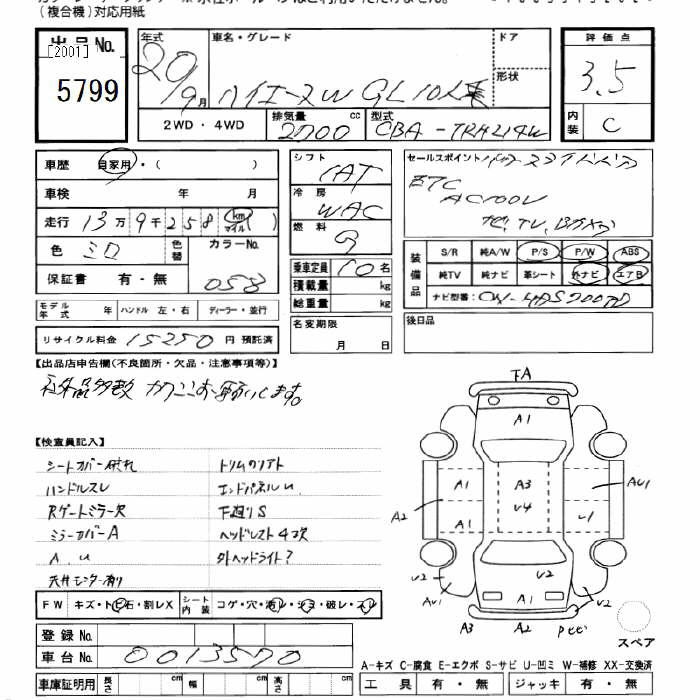 (複合機)対応用紙
出品No.
[2001]
5799
年式
20/9月
車名・グレード
ハイエースW GL 10人乗
ドア
形状
評価点
3.5
内装
C
2WD・4WD
排気量 2700 cc
型式 CBA-TRH214W
車歴 自家用・( )
車検 年 月
走行 13万9千258 (km マイル)
色 シロ
色替
カラーNo. 058
保証書 有・無
シフト
CAT
冷房
WAC
燃料
G
乗車定員 10名
積載量 kg
総重量 kg
セールスポイント
ETC
AC100V
ナビ,TV,
装備品
S/R 純A/W P/S P/W ABS
純TV 純ナビ 革シート 外ナビ エアB
ナビ型番:
モデル年式 年 ハンドル 左・右 ディーラー・並行
リサイクル料金 15250 円 預託済
名変期限
月 日
後日品
【出品店申告欄(不良箇所・欠品・注意事項等)】
社外品多数
【検査員記入】
シートカバー破れ
トリムのリアト
ハンドルスレ
エンドパネルU
Rゲートミラー欠
下廻りS
ミラーカバーA
ヘッドレスト4コ欠
A.U
外ヘッドライト?
天井モニター有り
FA
A1
A1 A3 AU1
A2 V4
A1 U1
U2 U2
AU1 U2
A3 A2
スペア
FW キズ・トビ石・割レX
シート内装 コゲ・穴・汚レ・シミ・破レ・スレ
登録No.
車台No. 0013570
車庫証明用 長さ cm 幅 cm 高さ cm
A-キズ C-腐食 E-エクボ S-サビ U-凹ミ W-補修 XX-交換済
工具 有・無 ジャッキ 有・無